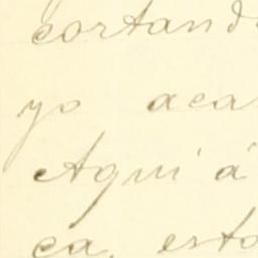 cortand
yo aca
Aquí á
ca, esto